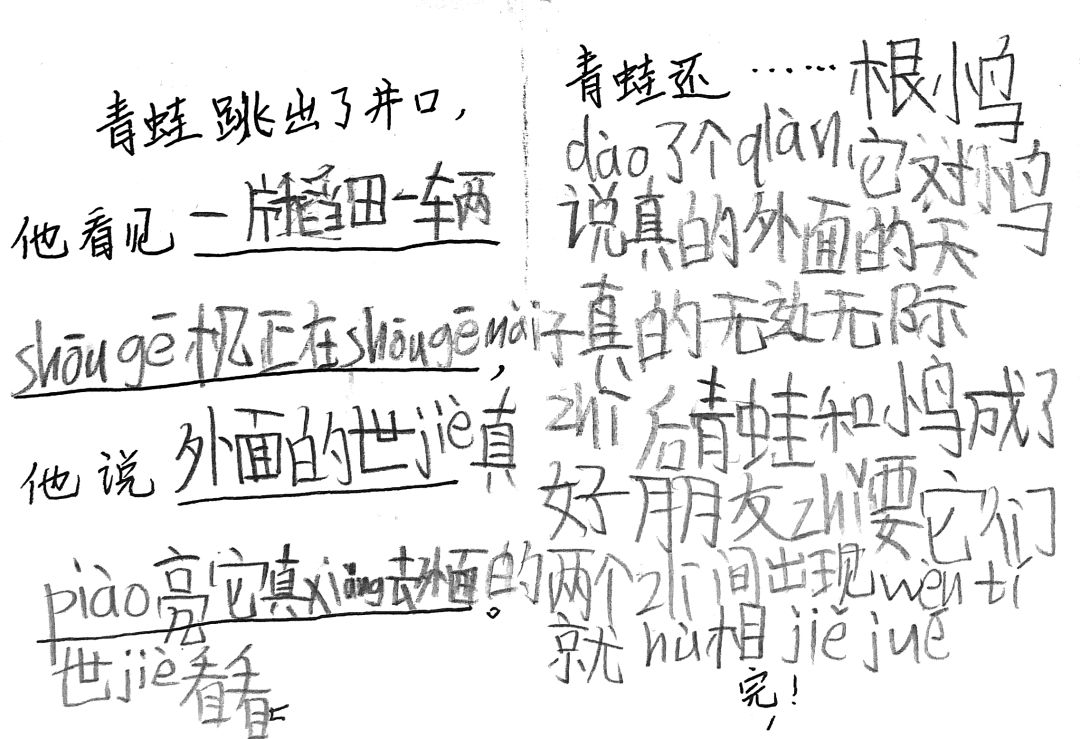 青蛙跳出了井口，
他看见一片稻田一车两
shōu gē机正在shōu gē mài子，
他说外面的世jiè真
piào亮它真xiǎng去外面的。
世jiè看看
青蛙还……根小鸟
dào了个qiàn，它对小鸟
说真的外面的天
真的无边无际
zhī后青蛙和小鸟成了
好朋友zhǐ要它们
两个zhī间出现wèn tí
就hù相jiě jué
完！